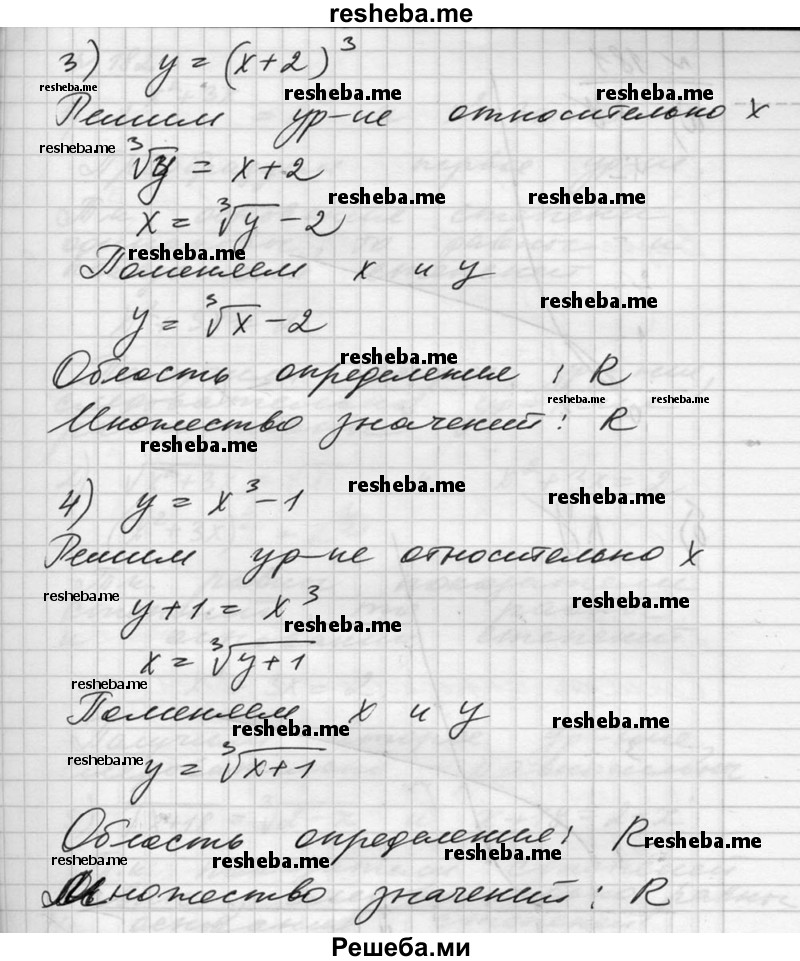 resheba.me
3) y = (x+2)³
resheba.me resheba.me resheba.me
Решим ур-ие относительно x
resheba.me
∛y = x+2
resheba.me resheba.me
x = ∛y - 2
resheba.me
Поменяем x и y
resheba.me
y = ∛x - 2
resheba.me
Область определения : R
resheba.me resheba.me
Множество значений : R
resheba.me
resheba.me resheba.me
4) y = x³ - 1
Решим ур-ие относительно x
resheba.me resheba.me
y+1 = x³
resheba.me
x = ∛(y+1)
resheba.me
Поменяем x и y
resheba.me resheba.me
resheba.me
y = ∛(x+1)
Область определения : R
resheba.me
resheba.me resheba.me resheba.me
Множество значений : R
Решеба.ми